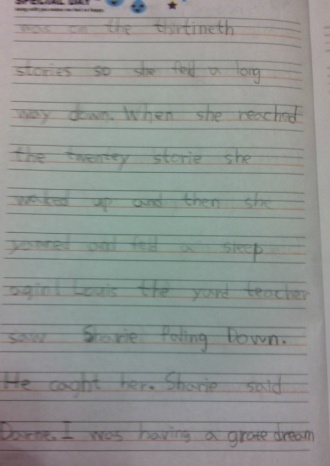 SPECIAL DAY
was on the thirtineth
stories so she feld a long
way down. When she reached
the twentey storie she
waked up and then she
yanned and feld a sleep
agin! Louis the yard teacher
saw Sharie Poling Down.
He caght her. Sharie said
Darne. I was having a grate dream